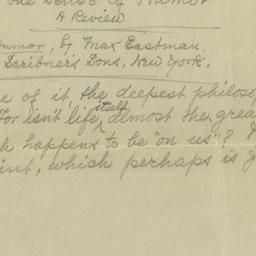 The Sense of Humor
A Review
Humor, by Max Eastman.
Scribner's Sons, New York.
e of it, the deepest philoso
For isn't life itself almost the grea
h happens to be "on us"?
int, which perhaps is